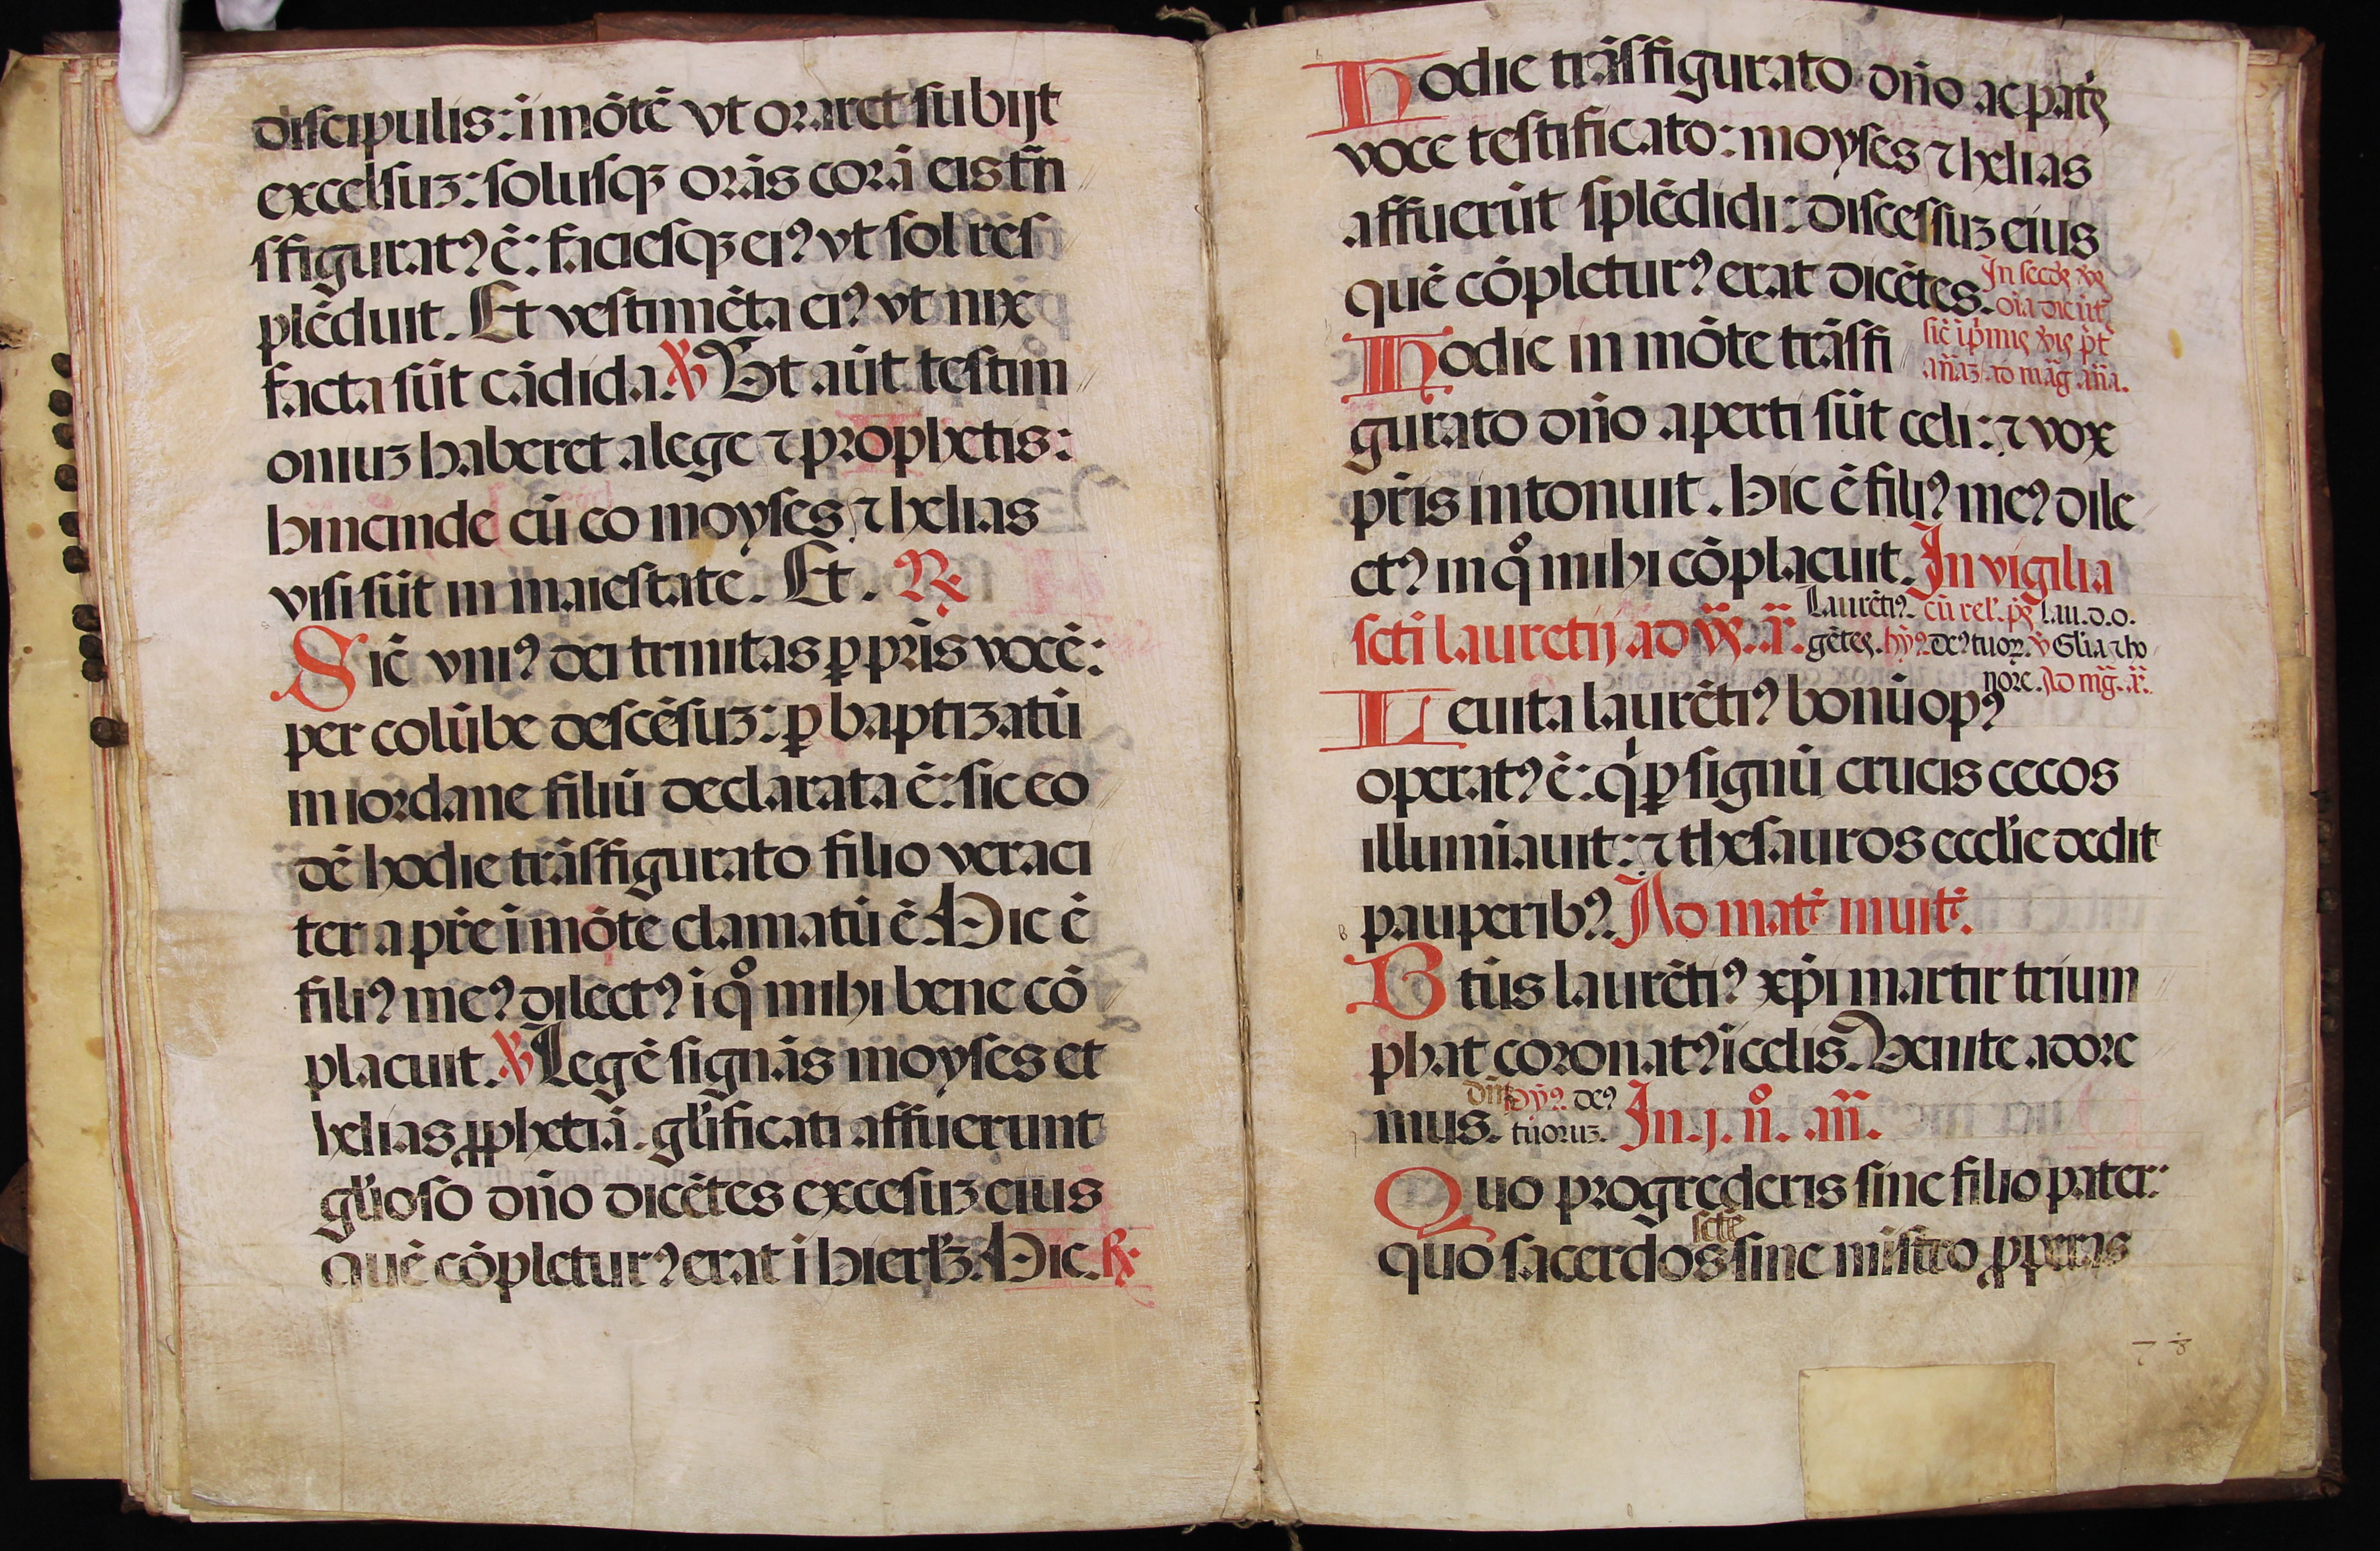 discipulis: i mōtē vt oraret subijt
excelsuꝫ: solusqꝫ orās corā eis trā
sfiguratꝰ ē: faciesqꝫ eiꝰ vt sol res
plēduit. Et vestimēta eiꝰ vt nix
facta sūt cādida. ℣ Vt aūt testim
oniuꝫ haberet a lege ⁊ prophetis:
hincinde cū eo moyses ⁊ helias
visi sūt in maiestate. Et. ℟
Sic̄ vniꝰ dei trinitas ꝑ pr̄is vocē:
per colūbe descēsuꝫ: ꝑ baptizatū
in iordane filiū declarata ē: sic eo
dē hodie trāsfigurato filio veraci
ter a pr̄e i mōte clamatū ē. Hic ē
filiꝰ meꝰ dilectꝰ i qͦ mihi bene cō
placuit. ℣ Legē signās moyses et
helias ꝓphetiā. gl̄ificati affuerunt
gl̄ioso dn̄o dicētes excesuꝫ eius
quē cōpleturꝰ erat i hierl̄ꝫ. Hic. ℟
Hodie trāsfigurato dn̄o ac patꝭ
voce testificato: moyses ⁊ helias
affuerūt splēdidi: discessuꝫ eius
quē cōpleturꝰ erat dicētes. In secdꝭ vꝭ
oīa dicūt
Hodie in mōte trāsfi sic̄ i pmꝭ vꝭ p̄t
an̄aꝫ ad māg an̄a.
gurato dn̄o aperti sūt celi: ⁊ vox
pr̄is intonuit. Hic ē filiꝰ meꝰ dile
ctꝰ in qͦ mihi cōplacuit. In vigilia
scti lauretij ad vꝭ. a. Laurētiꝰ. cū rel'. pꝭ lau. d. o.
gētes. hỹꝰ. deꝰ tuoꝝ. ℣ Gl̄ia ⁊ ho
nore. Ad mḡ. a.
Leuita laurētiꝰ bonū opꝰ
operatꝰ ē: qͥ ꝑ signū crucis cecos
illumīauit: ⁊ thesauros eccl̄ie dedit
pauperibꝰ. Ad mat̄ inuit̄.
Btūs laurētiꝰ xp̄i martir trium
phat coronatꝰ i celis. Uenite adore
mus. dn̄m hỹꝰ. deꝰ tuoruꝫ. In. j. nͦ. an̄.
Quo progrederis sine filio pater:
quo sacerdos scte sine mīstro ꝓperas